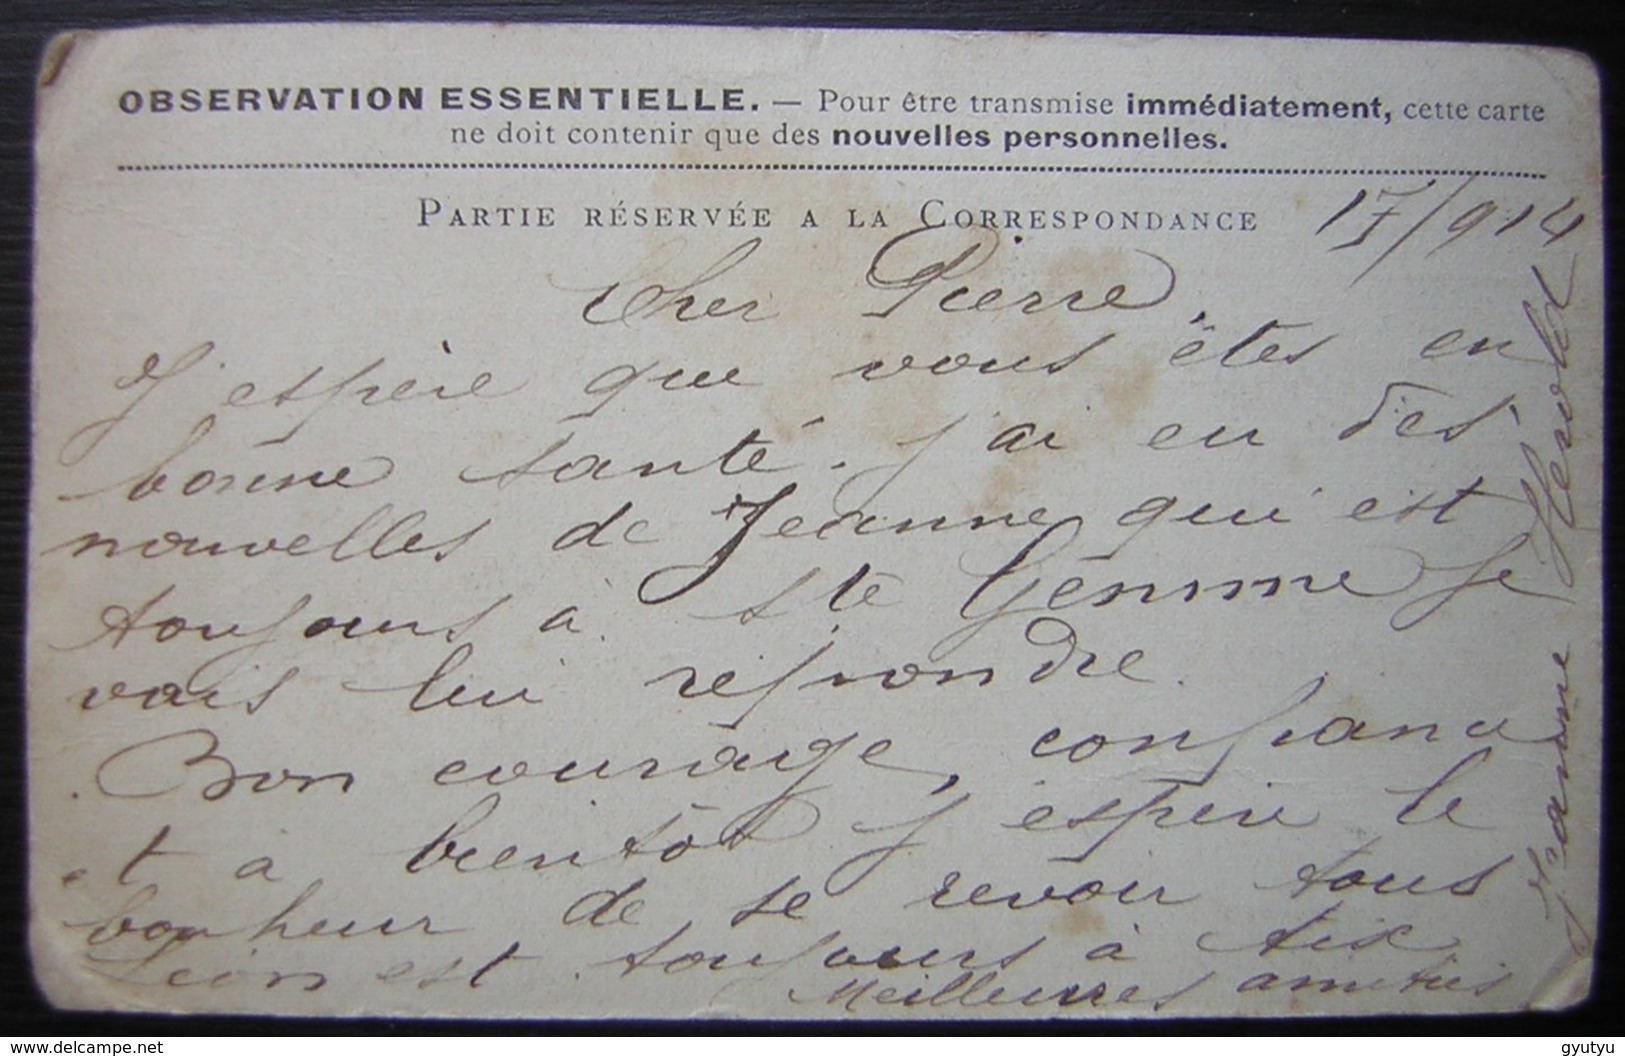 OBSERVATION ESSENTIELLE. — Pour être transmise immédiatement, cette carte
ne doit contenir que des nouvelles personnelles.
PARTIE RÉSERVÉE A LA CORRESPONDANCE
17/914
Cher Pierre,
J'espère que vous êtes en
bonne santé. J'ai eu des
nouvelles de Jeanne qui est
toujours à Ste Gemme je
vais lui répondre.
Bon courage, confiance
et à bientôt j'espère le
bonheur de se revoir tous
Léon est toujours à Aix
Meilleures amitiés
Jeanne Herold
www.delcampe.net
gyutyu